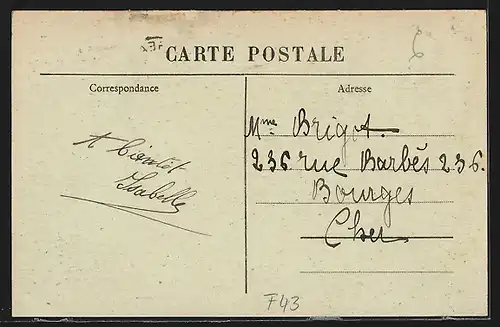 CARTE POSTALE
Correspondance
Adresse
A bientôt
Isabelle
Mme Brigot.
236 rue Barbés 236.
Bourges
Cher
F43